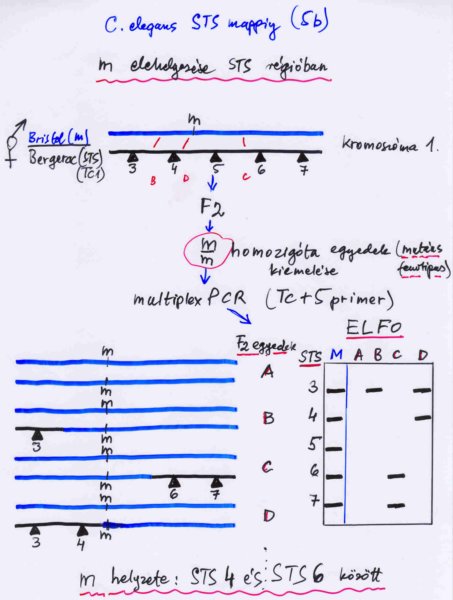 C. elegans STS mapping (5b)
m elehelyezése STS régióban
m
Bristol (m)
Bergerac (STS)
(Tc1)
kromoszóma 1.
3 4 5 6 7
B D C
F2
m
m
homozigóta egyedek (meténs
kiemelése fenotipus)
multiplex PCR (Tc + 5 primer)
F2 egyedek
ELFO
STS M A B C D
m
m
A
3
m
3
m
B
4
5
m
6 7
m
C
6
m
3 4
m
D
7
m helyzete: STS 4 és STS 6 között